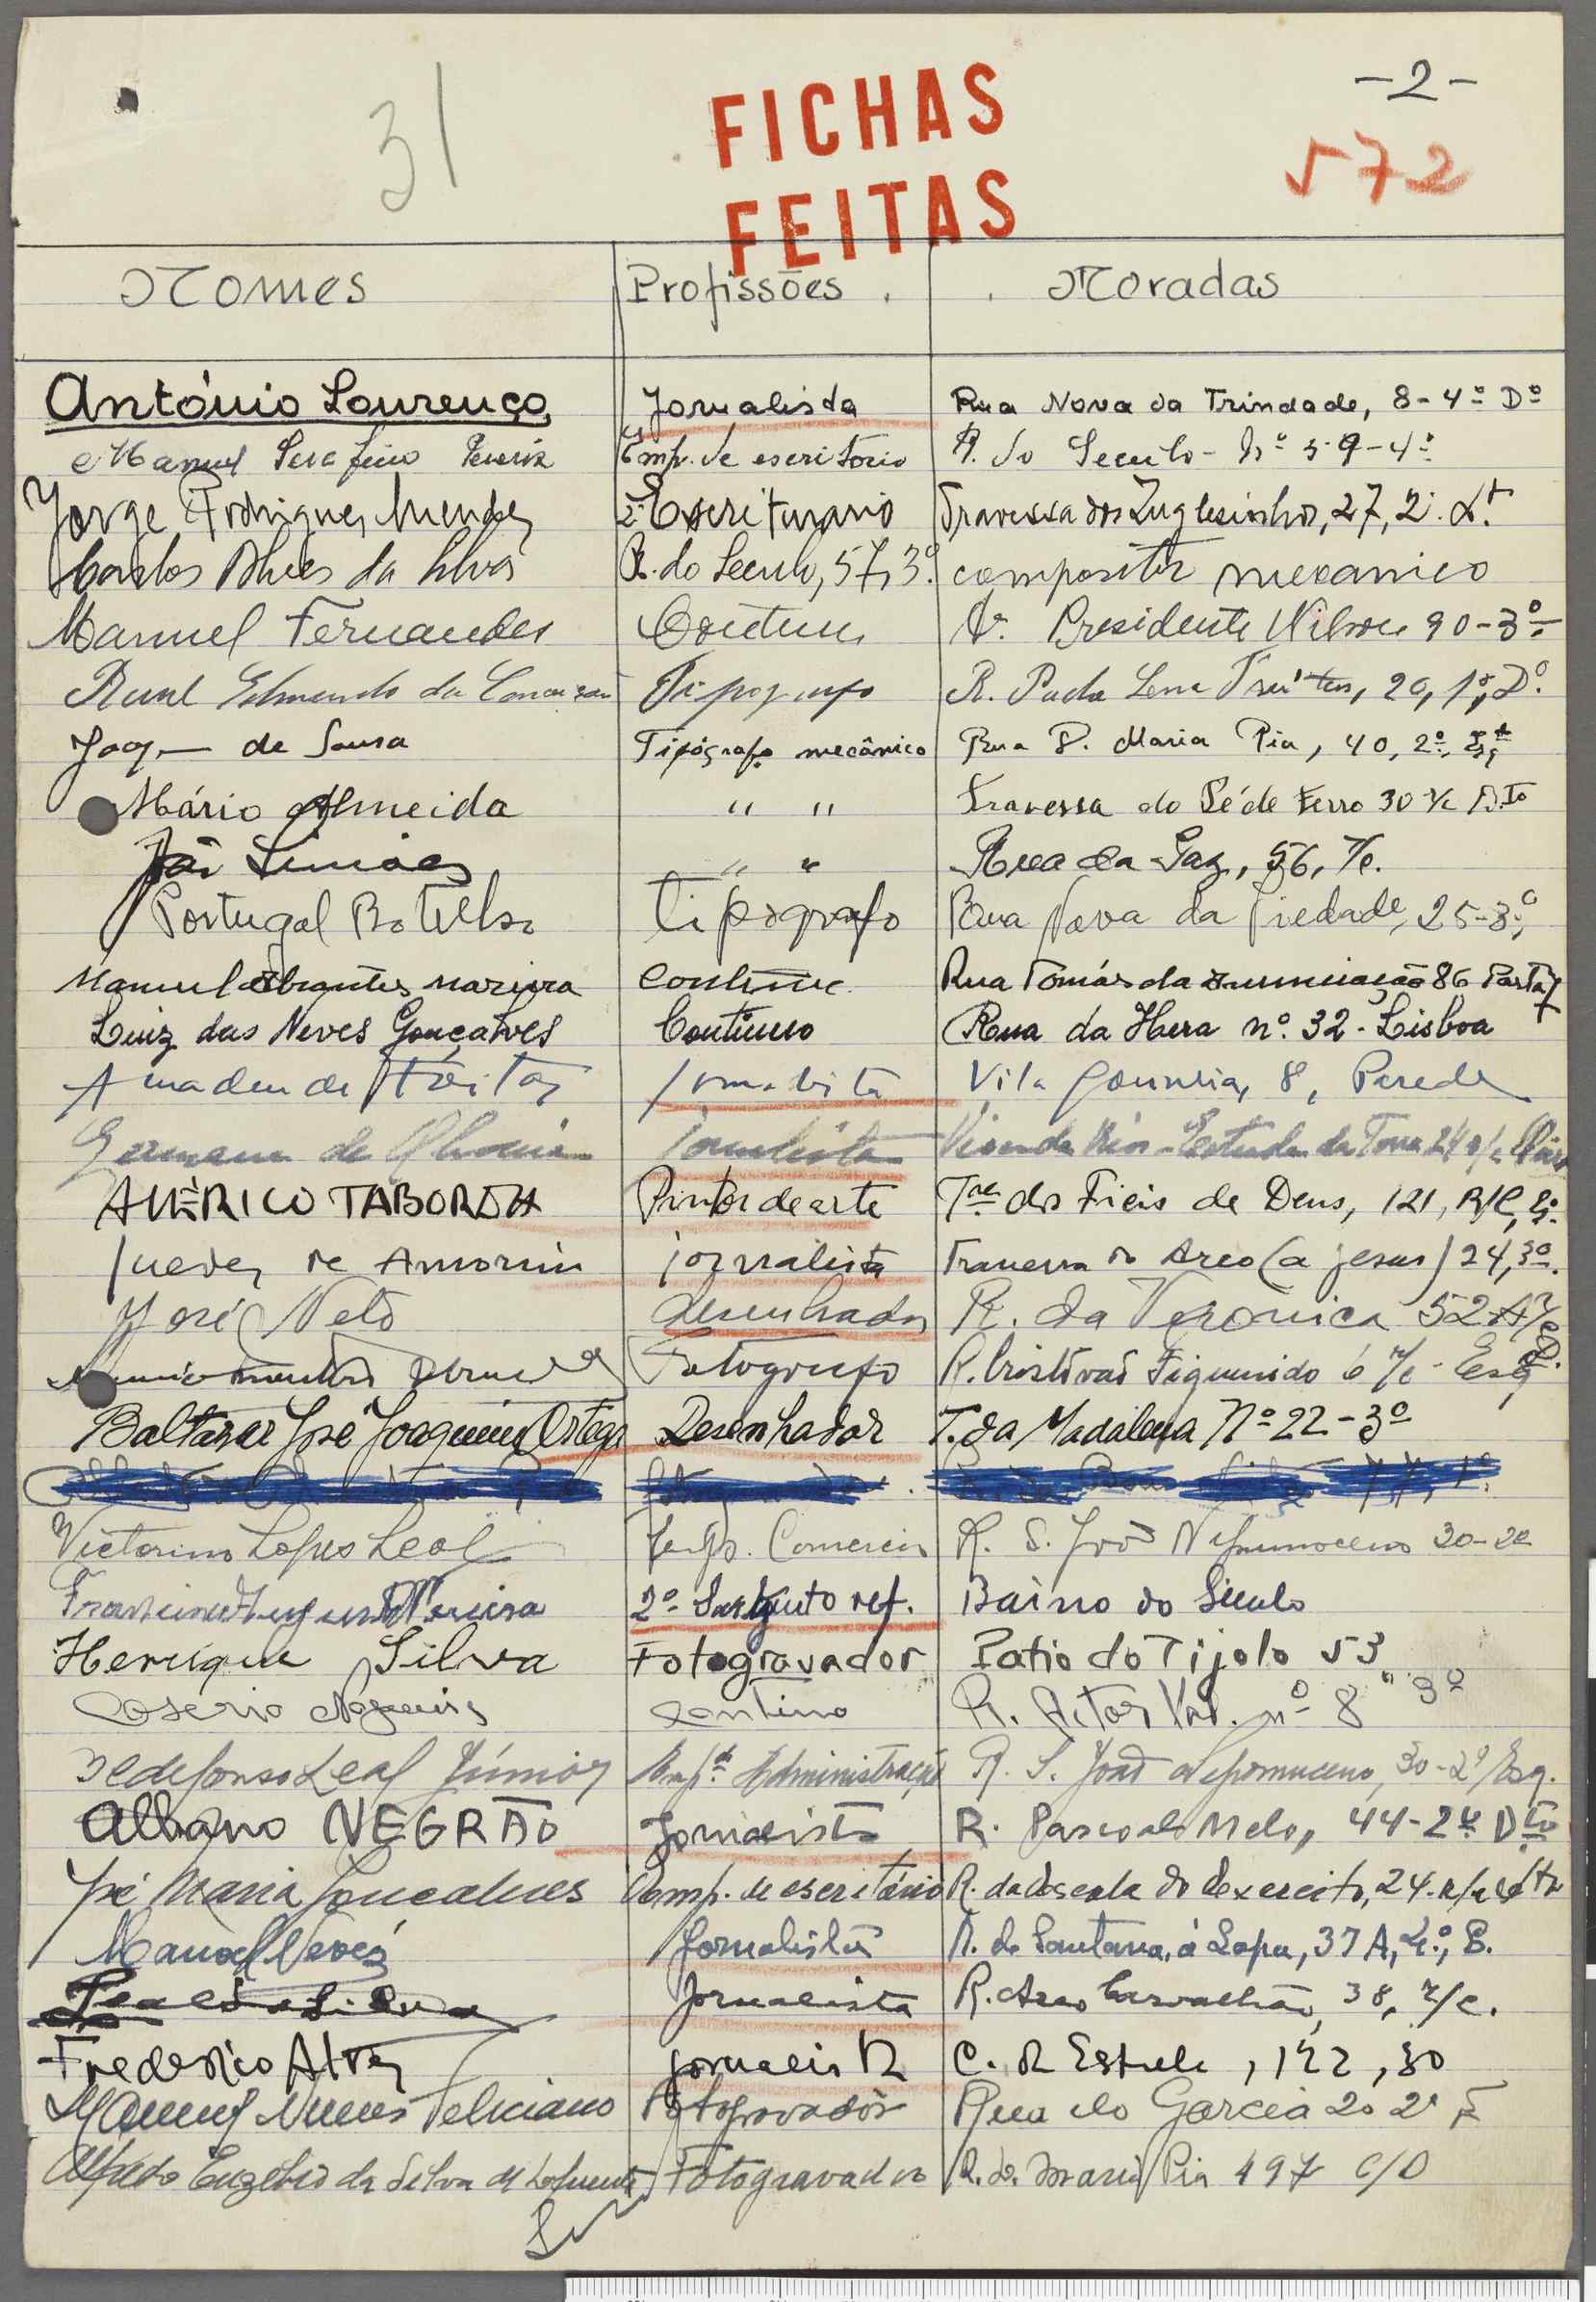 31
FICHAS
FEITAS
-2-
572
Nomes Profissões Moradas
António Lourenço Jornalista Rua Nova da Trindade, 8-4º Dº
Manuel Serafim Emp. de escritorio R. do Seculo - Nº 59-4º
Jorge Rodrigues Mendes 2º Escriturario Travessa dos Inglesinhos, 27, 2º
Carlos Alves da Silva R. do Seculo, 57, 3º. compositor mecanico
Manuel Fernandes Contínuo Av. Presidente Wilson 90-3º
Raul Edmundo da Conceição Tipografo R. 20, 1º, Dº.
Joaqm de Sousa Tipógrafo mecânico Rua D. Maria Pia, 40, 2º,
Mário Almeida " " Travessa do Pé de Ferro 30 r/c D.to
João Simões " " Rua da Paz, 56, r/c.
Portugal Botelho tipógrafo Rua Nova da Piedade, 25-3º,
Manuel Abrantes continuo Rua Tomás da Anunciação 86
Luiz das Neves Gonçalves Continuo Rua da Hera nº. 32 - Lisboa
Amadeu de Freitas jornalista Vila 8, Parede
Germano de jornalista Vivenda - Estrada da Torre 24 r/c
AMÉRICO TABORDA Pintor de arte Tra. dos Fieis de Deus, 121, R/C,
Guedes de Amorim jornalista Travessa do Arco (a jesus) 24, 3º.
José Neto desenhador R. da Verónica 52
Fotografo R. Cristóvão Figueiredo 6 r/c - Esq
Baltazar José Joaquim Ortega Desenhador T. da Madalena Nº 22-3º
Victorino Lopes Leal Emp. Comercio R. S. João Nepomuceno 30-2º
2º Sargento ref. Bairro do Século
Henrique Silva Fotogravador Patio do Tijolo 53
Contino R. Actor Val. nº 8 " 3º
Ildefonso Leal Júnior Emp. Administração R. S. João Nepomuceno, 30-2º/Esq.
Albano NEGRÃO Jornalista R. Pascoal Melo, 44-2º Dto
José Maria Gonçalves Emp. de escritório R. da Escola do Exercito, 24-
Manuel Neves Jornalista R. de Santana, à Lapa, 37 A, 2.º, E.
Leal da Silva Jornalista R. Arco Carvalhão, 38, r/c.
Frederico Alves jornalista C. da Estrela, 122, 3º
Manuel Nunes Feliciano Fotogravador Rua do Garcia 20 2º E
Alfredo Euzébio da Silva Fotogravador R. D. Maria Pia 497 C/D